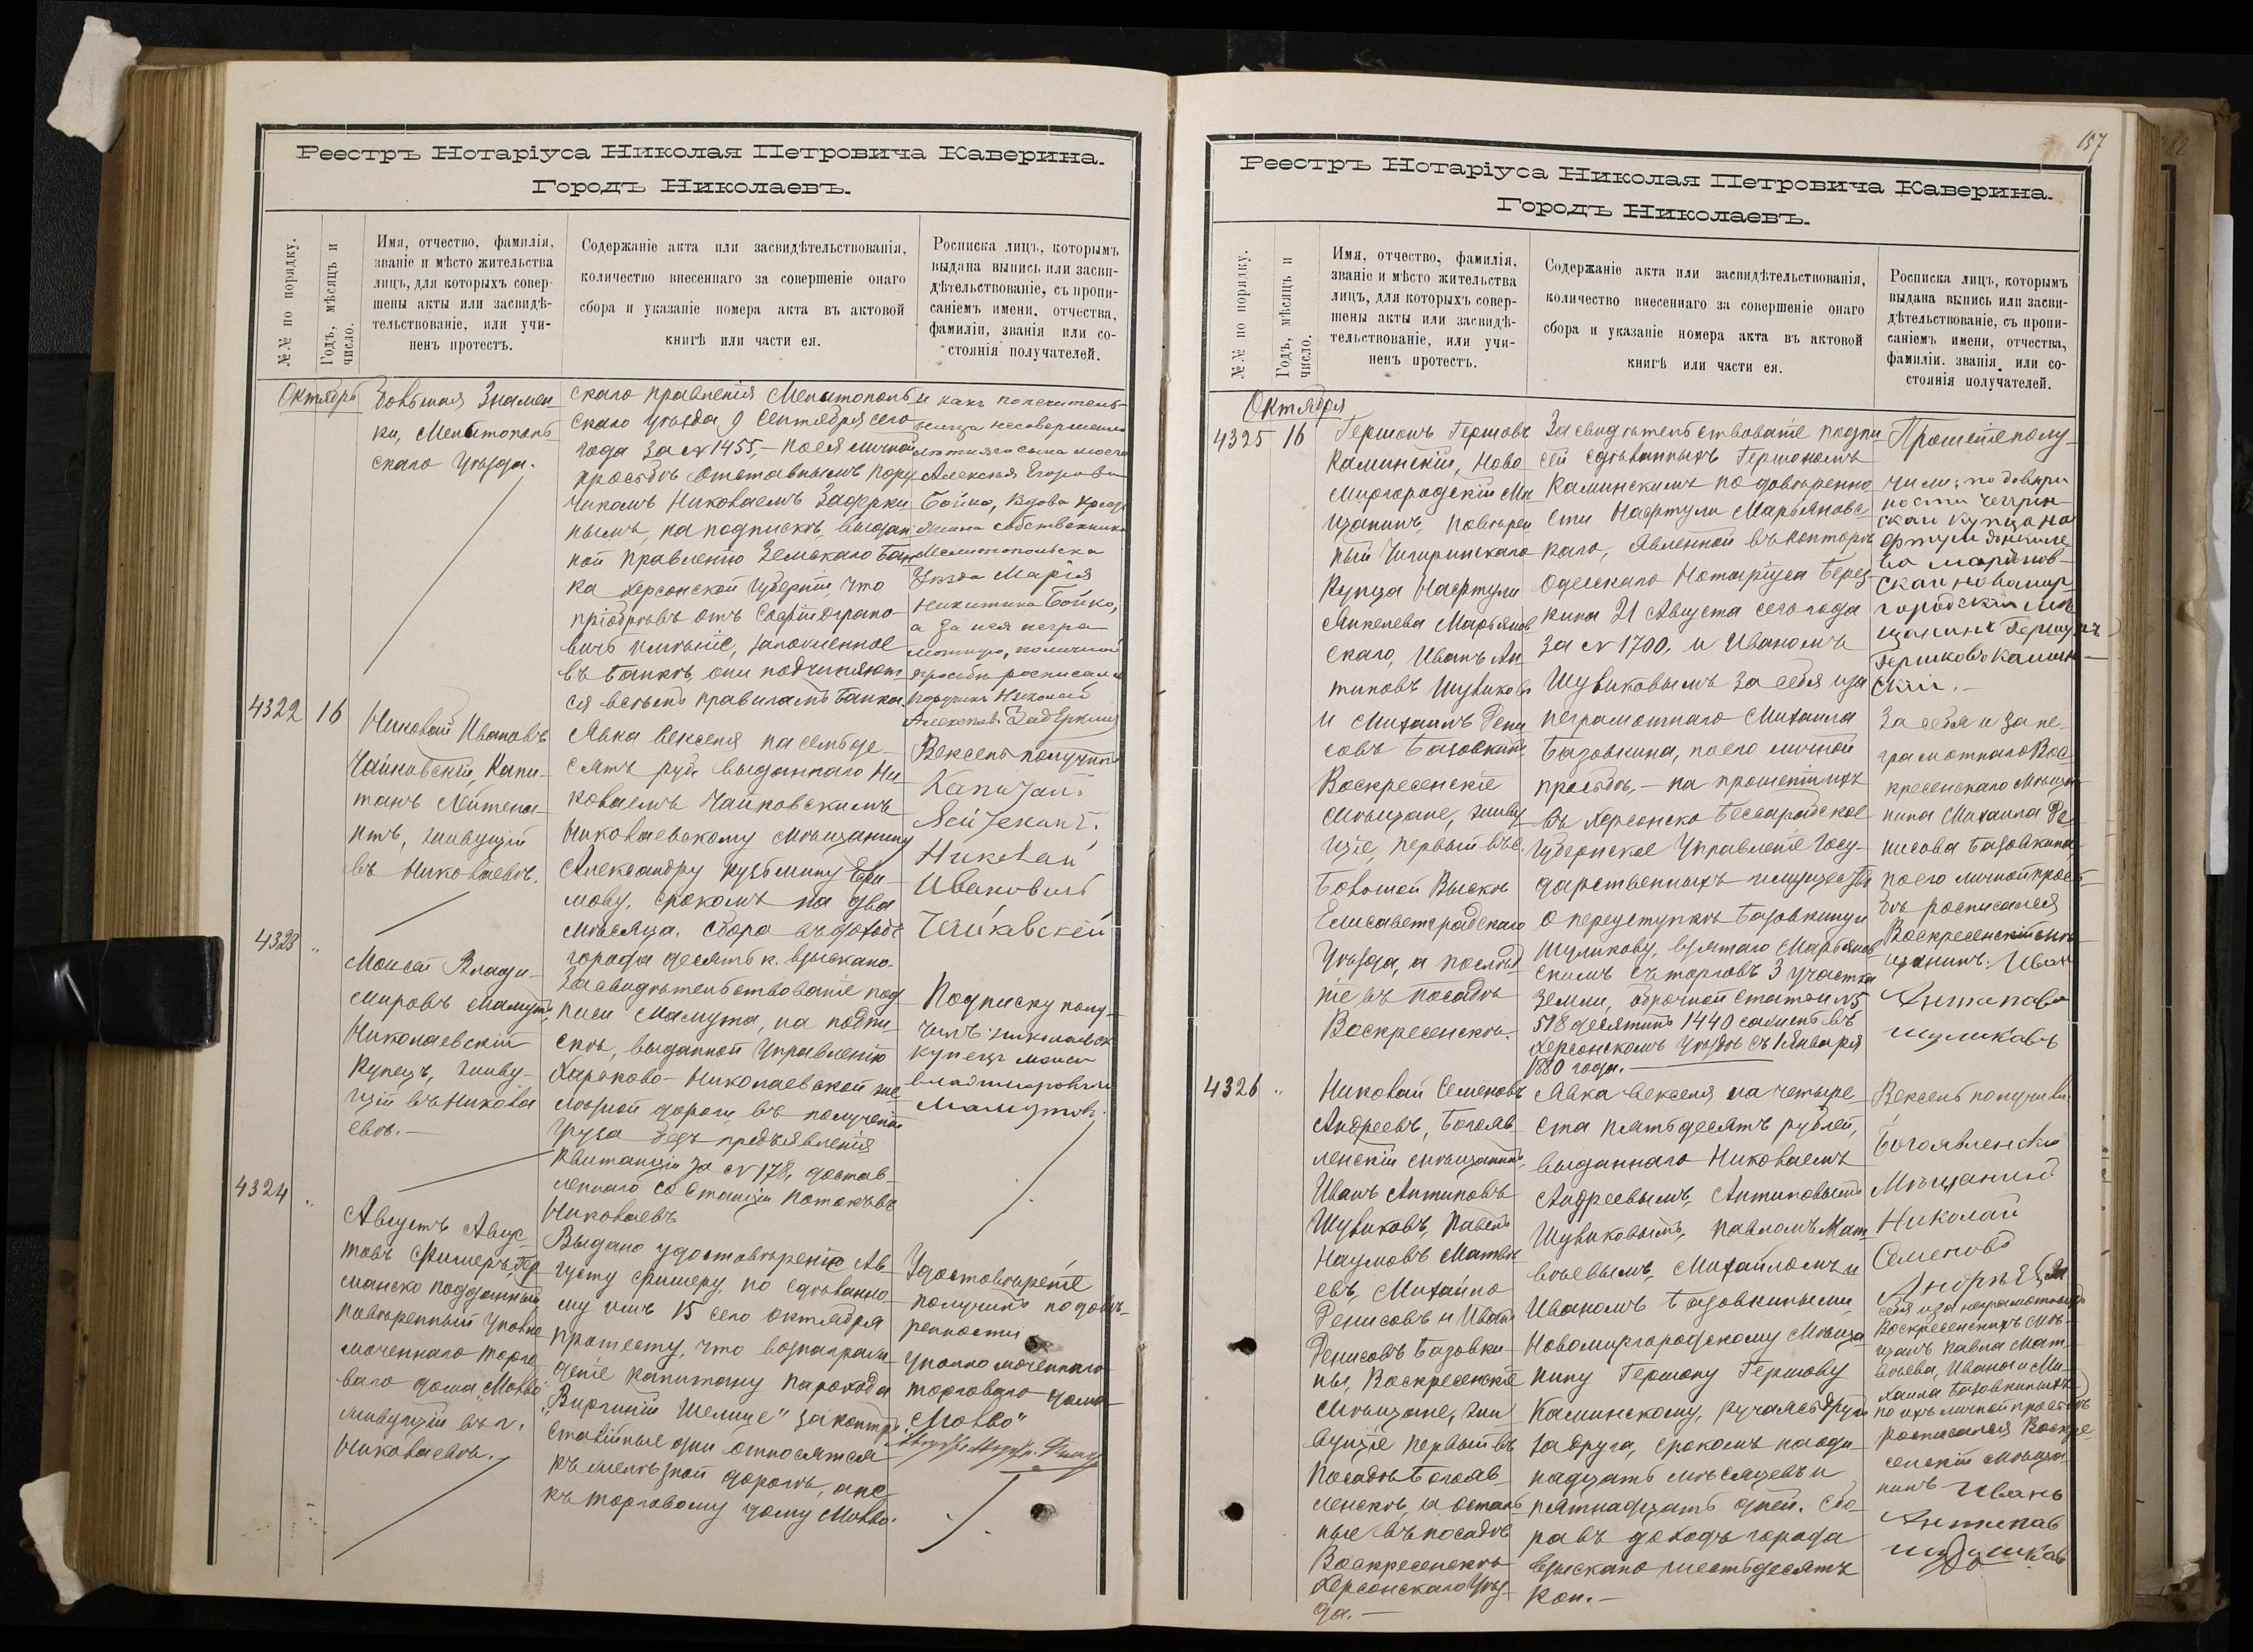 Реестръ Нотаріуса Николая Петровича Каверина.
Городъ Николаевъ.
№№ по порядку.
Годъ, мѣсяцъ и
число.
Имя, отчество, фамилія,
званіе и мѣсто жительства
лицъ, для которыхъ совер-
шены акты или засвидѣ-
тельствованіе, или учи-
ненъ протестъ.
Содержаніе акта или засвидѣтельствованія,
количество внесеннаго за совершеніе онаго
сбора и указаніе номера акта въ актовой
книгѣ или части ея.
Росписка лицъ, которымъ
выдана выпись или засви-
дѣтельствованіе, съ пропи-
саніемъ имени, отчества,
фамиліи, званія или со-
стоянія получателей.
Октябрь
Большая Знамен-
ки, Мелитополь
скаго уѣзда.
скаго правленія Мелитополь
скаго уѣзда 9 Сентября сего
года за № 1455, – по ея личной
просьбѣ отставнымъ пору
чикомъ Николаемъ Задерки
нымъ, на подпискѣ, выдан
ной правленію Земскаго Бан
ка Херсонской Губерніи, что
пріобрѣвъ отъ Софіи
вичъ имѣніе, заложенное
въ Банкѣ, они подчиняют
ся всѣмъ правиламъ Банка.
и какъ попечитель-
ница несовершенно
лѣтняго сына моего
Алексѣя Егорова
Бойко, вдова крестья
янина собственника
Мелитопольска
Уѣзда Марія
Никитина Бойко,
а за нея негра
мотную, по личной
просьбѣ росписался
поручикъ Николай
Алексѣевъ Задеркинъ
4322 16
Николай Ивановъ
Чайковскій, Капи-
танъ Лейтена-
нтъ, живущій
въ Николаевѣ.
Явка векселя на семьде-
сятъ руб. выданнаго Ни-
колаемъ Чайковскимъ
Николаевскому мѣщанину
Александру Кузьмину
мову, срокомъ на два
мѣсяца. Сбора въ доходъ
города десять к. взыскано.
Вексель получилъ
Капитанъ
Лейтенантъ
Николай
Ивановичъ
Чайковскій
4323 "
Моисей Влади-
міровъ Мамутъ,
Николаевскій
Купецъ, живу-
щій въ Никола
евѣ.–
Засвидѣтельствованіе под
писи Мамута, на подпи-
скѣ, выданной управленію
Харьково-Николаевской же
лѣзной дороги, въ полученіи
груза безъ предъявленія
квитанціи за № 178, достав-
леннаго со Станціи Потокъ въ
Николаевъ
Подписку полу-
чилъ Николаевск
Купецъ Моисей
Владиміровичъ
Мамутовъ.
4324 "
Августъ Авгус-
товъ Фишеръ, Гер
манско подданный,
повѣренный уполно
моченнаго торго
ваго дома „Мовво"
живущій въ г.
Николаевѣ.–
Выдано удостовѣреніе Ав-
густу Фишеру, по сдѣланно-
му имъ 15 сего октября
протесту, что вознагражд-
деніе капитану парохода
„Виргинія Шелице" за контр-
сталійные дни относятся
къ желѣзной дорогѣ, а не
къ торговому дому Мовво.
Удостовѣреніе
получилъ по довѣ-
ренности
уполномоченнаго
торговаго дома
„Мовво"
157
Реестръ Нотаріуса Николая Петровича Каверина.
Городъ Николаевъ.
№№ по порядку.
Годъ, мѣсяцъ и
число.
Имя, отчество, фамилія,
званіе и мѣсто жительства
лицъ, для которыхъ совер-
шены акты или засвидѣ-
тельствованіе, или учи-
ненъ протестъ.
Содержаніе акта или засвидѣтельствованія,
количество внесеннаго за совершеніе онаго
сбора и указаніе номера акта въ актовой
книгѣ или части ея.
Росписка лицъ, которымъ
выдана выпись или засви-
дѣтельствованіе, съ пропи-
саніемъ имени, отчества,
фамиліи, званія или со-
стоянія получателей.
Октября
4325 16
Гершонъ Гершовъ
Каминскій, Ново
миргородскій Мѣ
щанинъ, повѣрен
ный Чигиринскаго
Купца Нафтули
Янкелева Марьянов
скаго, Иванъ Ан-
типовъ Шуликовъ
и Михаилъ Дени
совъ Базовкинъ
Воскресенскіе
мѣщане, живу
щіе, первый въ с.
Большой Выскѣ
Елисаветградскаго
Уѣзда, а послѣд
ніе въ посадѣ
Воскресенскѣ.
Засвидѣтельствованіе подпи
сей сдѣланныхъ Гершономъ
Каминскимъ по довѣренно
сти Нафтули Марьяновс-
каго, явленной въ конторѣ
Одесскаго Нотаріуса Берез-
кина 21 Августа сего года
за № 1700, и Иваномъ
Шуликовымъ за себя и за
неграмотнаго Михаила
Базовкина, по его личной
просьбѣ,– на прошеніи ихъ
въ Херсонско Бессарабское
Губернское Управленіе Госу-
дарственныхъ имуществъ
о переуступкѣ Базовкину и
Шуликову, взятаго Марьянов
скимъ съ торговъ 3 участка
земли, оброчной статьи № 5
518 десятинъ 1440 сажень въ
Херсонскомъ уѣздѣ съ 1 Января
1880 года.–
Прошеніе полу-
чилъ, по довѣри
ности Чегрин-
скаго купца На
фтули Янкиле
ва Марянов-
скаго новомир-
городскій мѣ
щанинъ Гершунъ
Гершковъ Камин-
скій.–
За себя и за не-
грамотнаго Вос
кресенскаго мѣща-
нина Михаила Де
нисова Базовкина,
по его личной прось
бѣ росписался
Воскресенскій мѣ
щанинъ: Иван
Антиповъ
шуликавъ
4326 "
Николай Семеновъ
Андреевъ, Богояв
ленскій мѣщанинъ,
Иванъ Антиповъ
Шуликовъ, Павелъ
Наумовъ Матвѣ
евъ, Михайло
Денисовъ и Иванъ
Денисовъ Базовки
ны, Воскресенскіе
мѣщане, жи
вущіе первый въ
посадѣ Богояв
ленскѣ, а осталь
ные въ посадѣ
Воскресенскѣ
Херсонскаго Уѣз-
да.–
Явка векселя на четыре
ста пятьдесятъ рублей,
выданнаго Николаемъ
Андреевымъ, Антиповымъ
Шуликовымъ, Павломъ Мат
вѣевымъ, Михайломъ и
Иваномъ Базовкиными
Новомиргородскому Мѣща
нину Гершону Гершову
Каминскому, ручаясь другъ
за друга, срокомъ на оди-
надцать мѣсяцевъ и
пятнадцать дней. Сбо-
ра въ доходъ города
взыскано шестьдесятъ
коп.–
Вексель получили.
Богоявленскій
Мѣщанинъ
Николай
Семеновъ
Андрѣевъ За
себя и за неграмотныхъ
Воскресенскихъ мѣ-
щанъ Павла Мат-
вѣева, Ивана и Ми-
хаила Базовкиныхъ
по ихъ личной просьбѣ
росписался Воскре-
сенскій мѣща
нинъ Иванъ
Антипав
шуликав